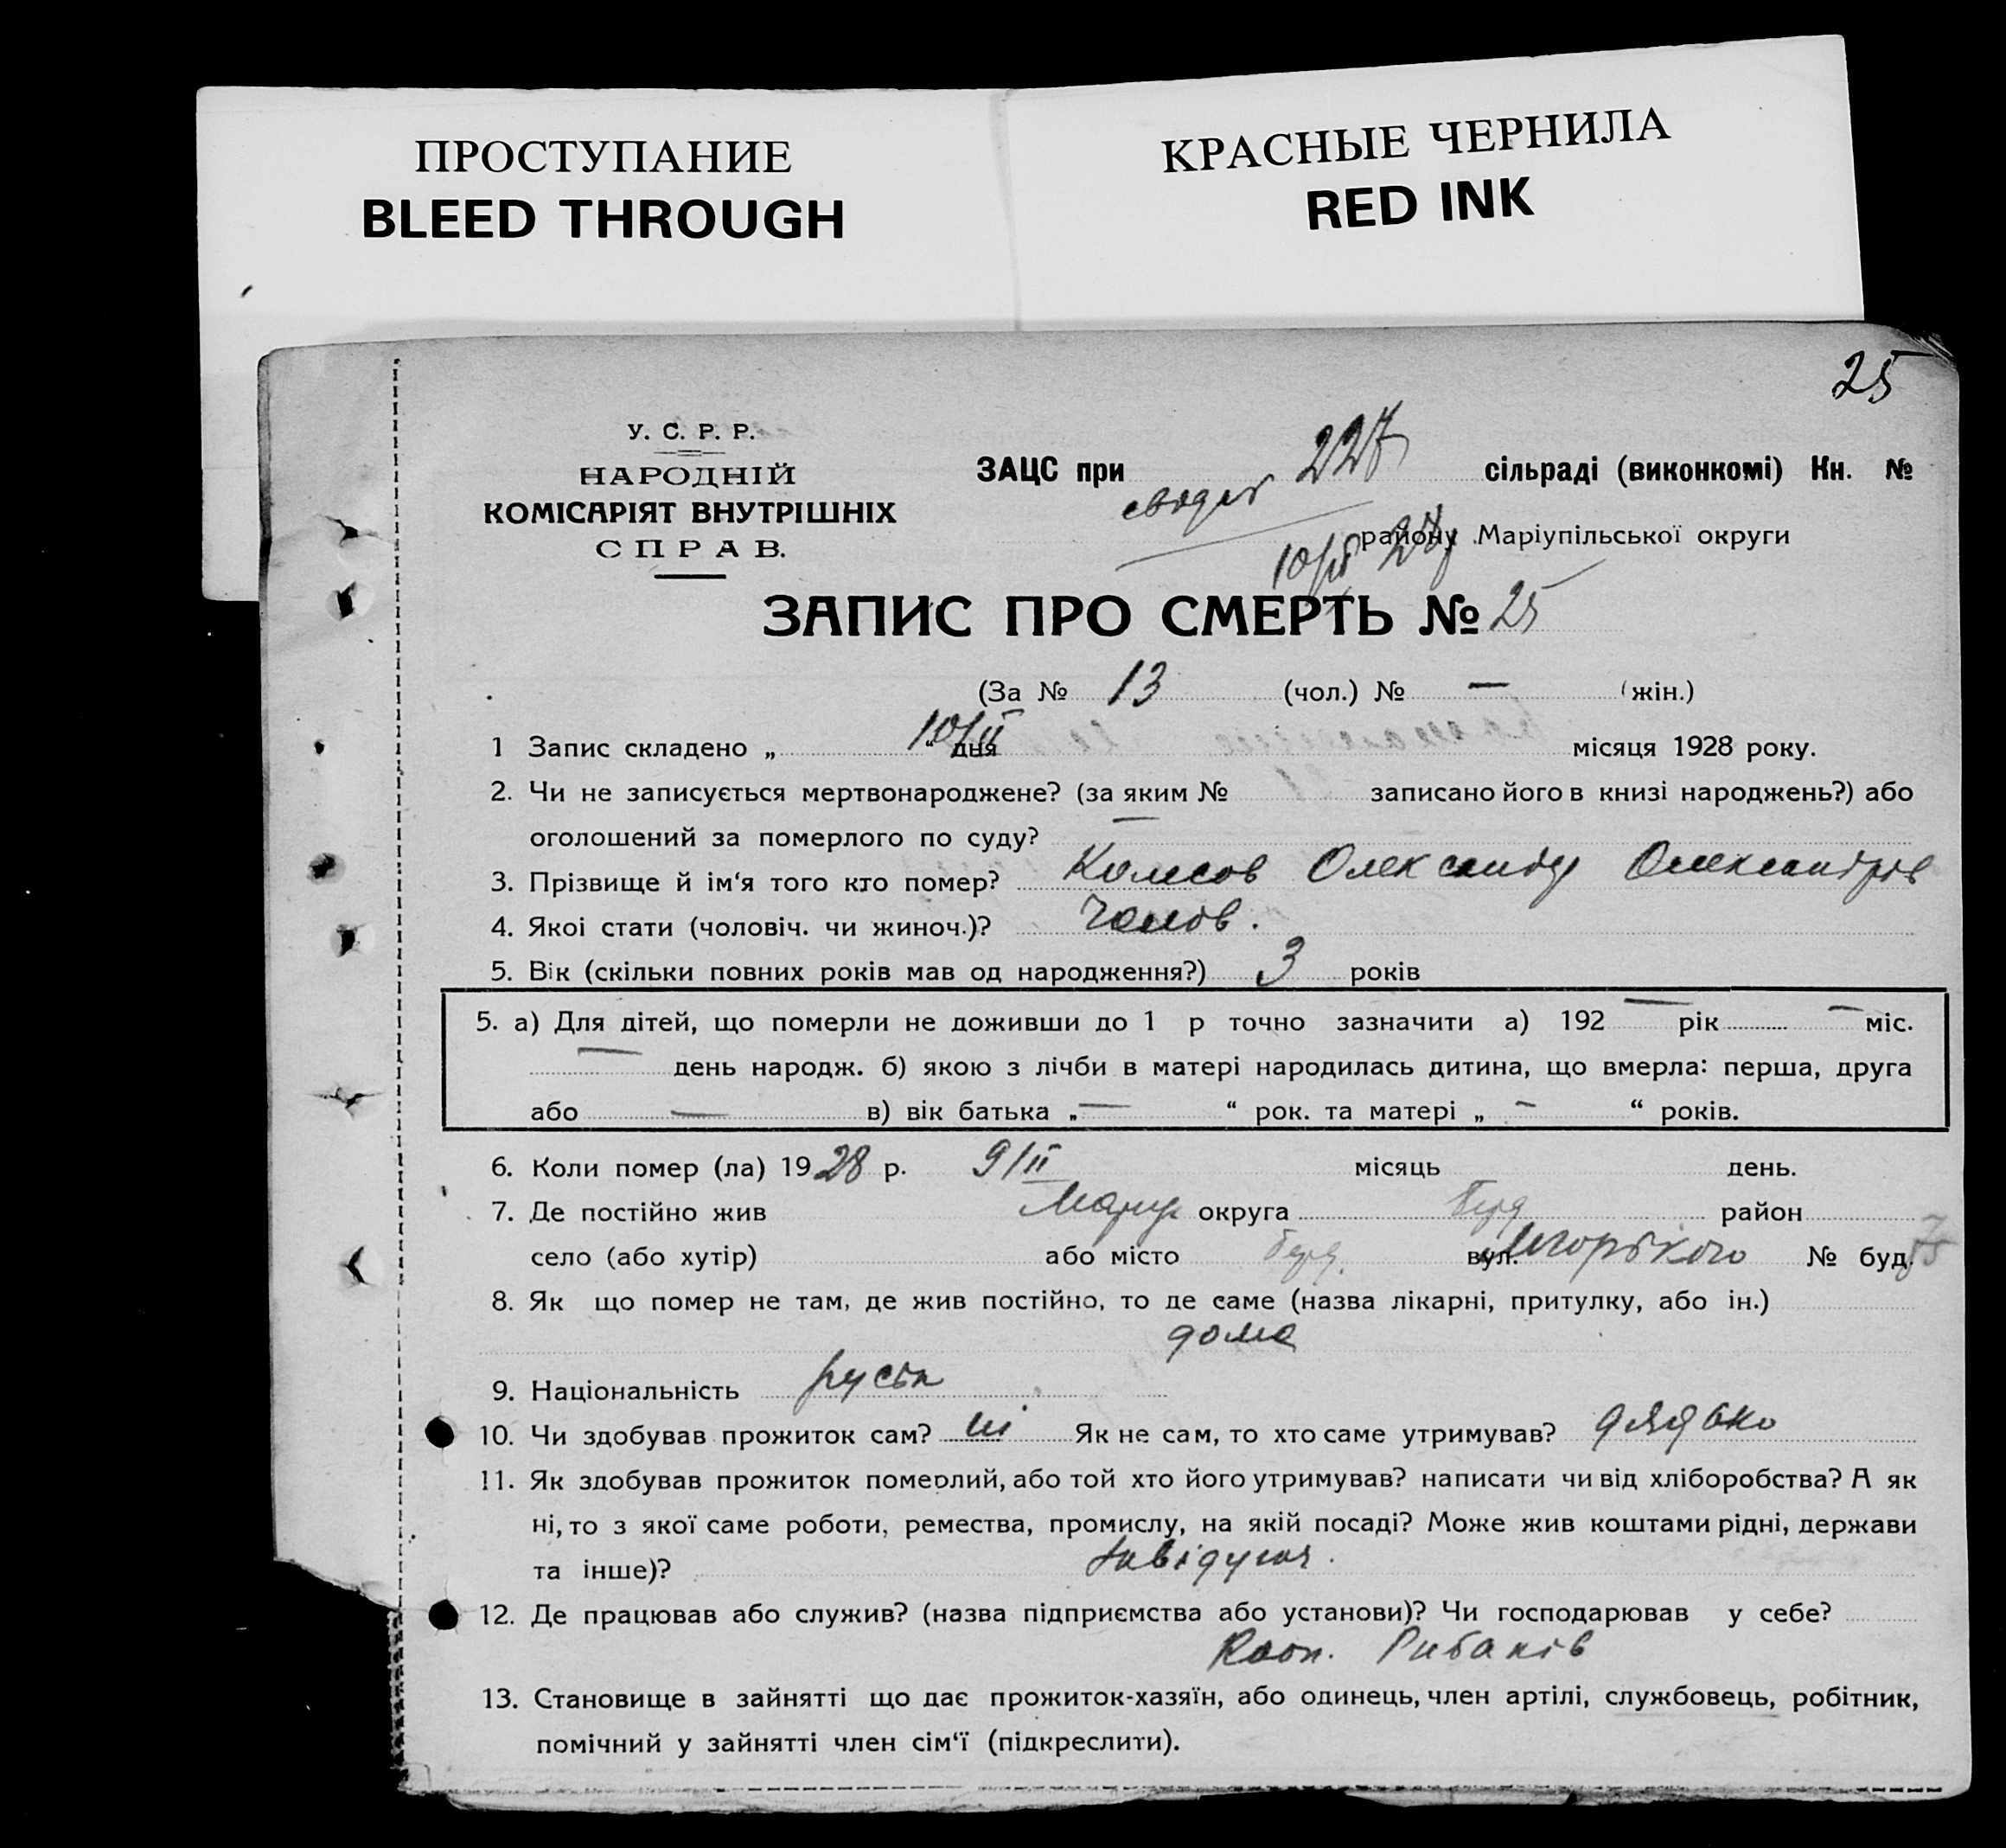 ПРОСТУПАНИЕ
BLEED THROUGH
КРАСНЫЕ ЧЕРНИЛА
RED INK
25
У. С. Р. Р.
НАРОДНІЙ
КОМІСАРІЯТ ВНУТРІШНІХ
СПРАВ.
ЗАЦС при 227 сільраді (виконкомі) Кн. №
району Маріупільської округи
ЗАПИС ПРО СМЕРТЬ № 25
(За № 13 (чол.) № — (жін.)
1 Запис складено „ 10/II “ дня місяця 1928 року.
2. Чи не записується мертвонароджене? (за яким № записано його в книзі народжень?) або
оголошений за померлого по суду? —
3. Прізвище й ім‘я того кто помер? Колесов Олександр Олександров
4. Якоі стати (чоловіч. чи жиноч.)? Чолов.
5. Вік (скільки повних років мав од народження?) 3 років
5. а) Для дітей, що померли не доживши до 1 р точно зазначити а) 192 — рік — міс.
— день народж. б) якою з лічби в матері народилась дитина, що вмерла: перша, друга
або — в) вік батька „ — “ рок. та матері „ — “ років.
6. Коли помер (ла) 1928 р. 9/II місяць день.
7. Де постійно жив Маріуп округа Берд район
село (або хутір) або місто Берд. вул. Горького № буд.
8. Як що помер не там, де жив постійно, то де саме (назва лікарні, притулку, або ін.)
дома
9. Національність руськ
10. Чи здобував прожиток сам? ні Як не сам, то хто саме утримував? дядько
11. Як здобував прожиток померлий, або той хто його утримував? написати чи від хліборобства? А як
ні, то з якої саме роботи, ремества, промислу, на якій посаді? Може жив коштами рідні, держави
та інше)? Завідуюч.
12. Де працював або служив? (назва підприємства або установи)? Чи господарював у себе?
Кооп. Рибаків
13. Становище в зайнятті що дає прожиток-хазяїн, або одинець, член артілі, службовець, робітник,
помічний у зайнятті член сім‘ї (підкреслити).